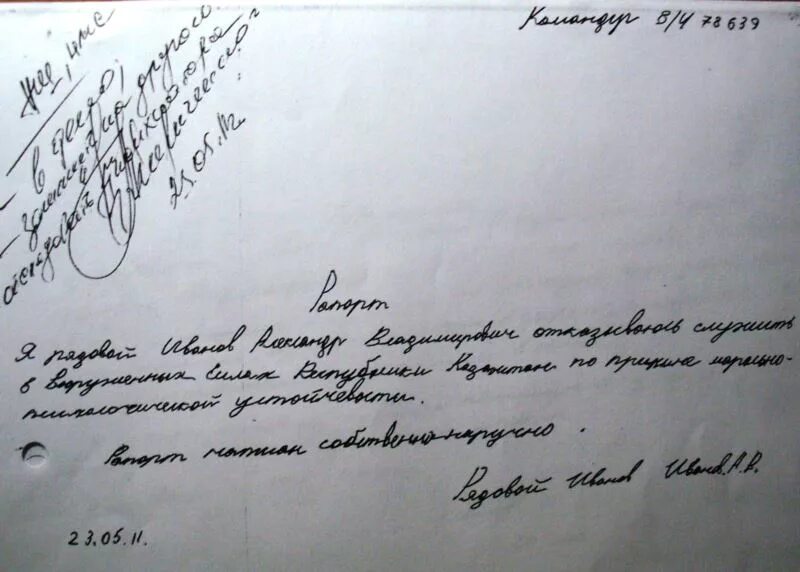 Командир В/Ч 78639
НШ, НМС
в дело;
заменить на другого.
25.05.11г.
Рапорт
Я рядовой Иванов Александр Владимирович отказываюсь служить
в Вооруженных Силах Республики Казахстан по причине морально-
психологической устойчевости.
Рапорт написан собственно-наручно.
Рядовой Иванов Иванов.А.В.
23.05.11.